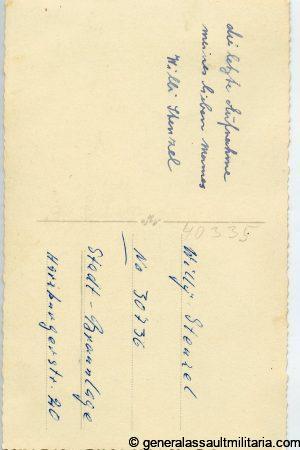 die letzte Aufnahme
meines lieben Mannes
Willi Stenzel
40335
Willy Stenzel
No 30736
Stadt-Braunlage
Harzburgerstr. 20
@ generalassaultmilitaria.com